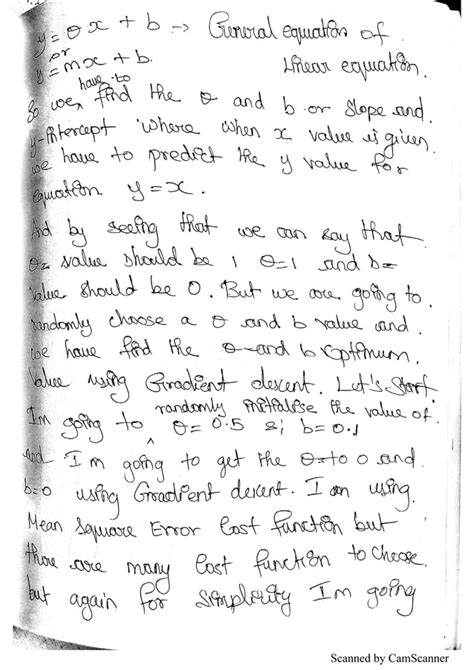 y = θx + b → General equation of
or
y = mx + b. linear equation.
have to
So we, find the θ and b or slope and
y-intercept where when x value is given.
we have to predict the y value for
equation y = x.
And by seeing that we can say that
θ= value should be 1 θ=1 and b=
value should be 0. But we are going to
randomly choose a θ and b value and
we have find the θ and b optimum
value using Gradient descent. Let's start
randomly initialise the value of
Im going to θ= 0.5 & b= 0.1
and I m going to get the θ= to 0 and
b=0 using Gradient descent. I am using
Mean Square Error Cost function but
there are many Cost function to choose.
but again for simplicity I m going
Scanned by CamScanner